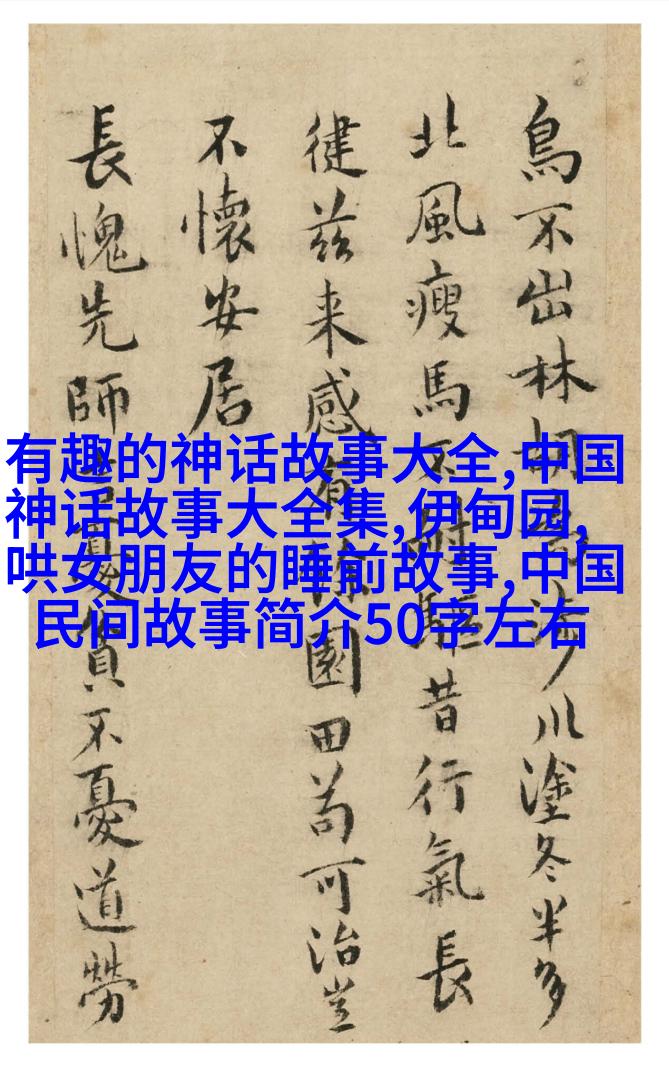 有趣的神话故事大全,中国
神话故事大全集,伊甸园,
哄女朋友的睡前故事,中国
民间故事简介50字左右
鳥不出林胡沙川塗冬半多
北風瘦馬不驅昔行氣長
健茲来感有園田苟可治豈
不懷安居
長愧先師貧不憂道勞